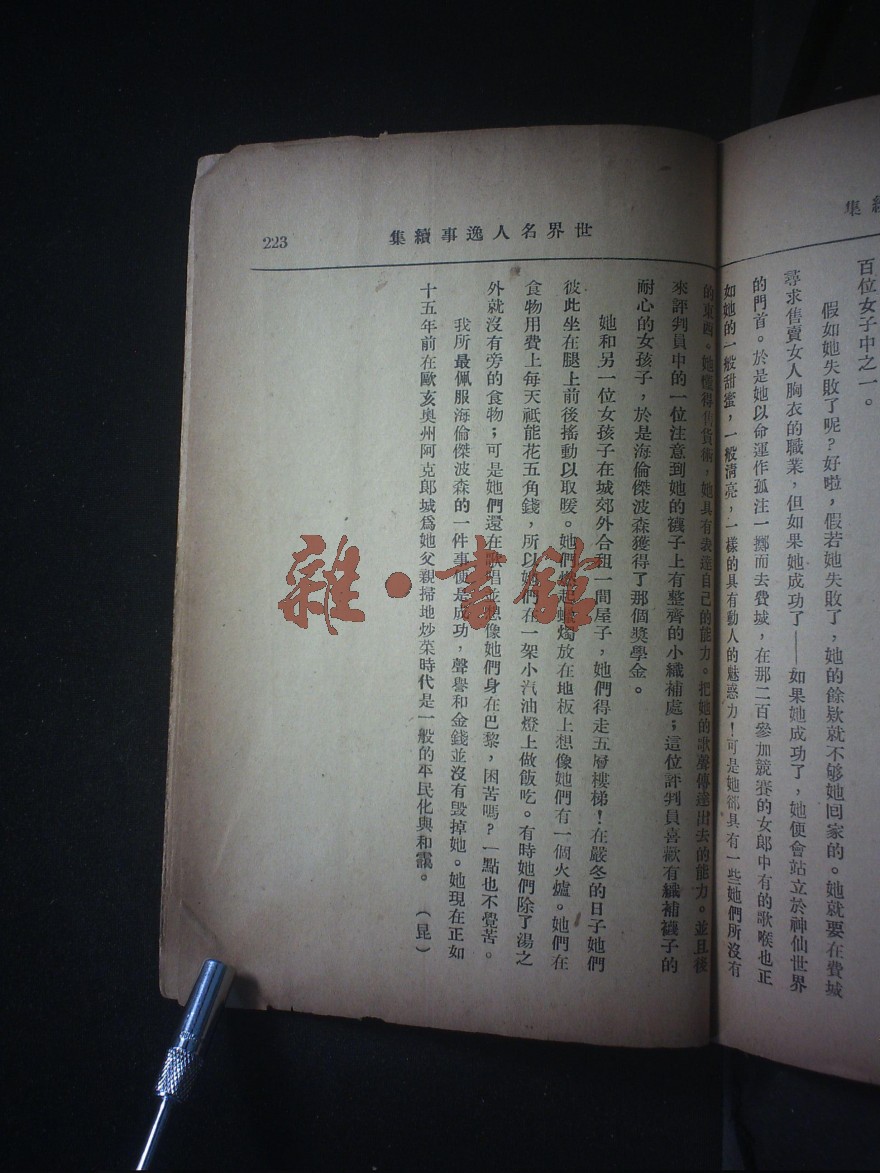 集續
百位女子中之一。
假如她失敗了呢?好啦,假若她失敗了,她的餘欵就不够她回家的。她就要在費城
尋求售賣女人胸衣的職業,但如果她成功了——如果她成功了,她便會站立於神仙世界
的門首。於是她以命運作孤注一擲而去費城,在那二百參加競賽的女郎中有的歌喉也正
如她的一般甜蜜,一般清亮,一樣的具有動人的魅惑力!可是她郤具有一些她們所沒有
223 集續事逸人名界世
的東西。她懂得售貨術,她具有表達自己的能力。把她的歌聲傳達出去的能力。並且後
來評判員中的一位注意到她的襪子上有整齊的小織補處;這位評判員喜歡有織補襪子的
耐心的女孩子,於是海倫傑波森獲得了那個獎學金。
她和另一位女孩子在城郊外合租一間屋子,她們得走五層樓梯!在嚴冬的日子她們
彼此坐在腿上前後搖動以取暖。她們燃起蠟燭放在地板上想像她們有一個火爐。她們在
食物用費上每天祗能花五角錢,所以她們在一架小汽油燈上做飯吃。有時她們除了湯之
外就沒有旁的食物;可是她們還在歌唱並想像她們身在巴黎,困苦嗎?一點也不覺苦。
我所最佩服海倫傑波森的一件事便是成功,聲譽和金錢並沒有毀掉她。她現在正如
十五年前在歐亥奧州阿克郎城爲她父親掃地炒菜時代是一般的平民化與和靄。(昆)
雜·書館